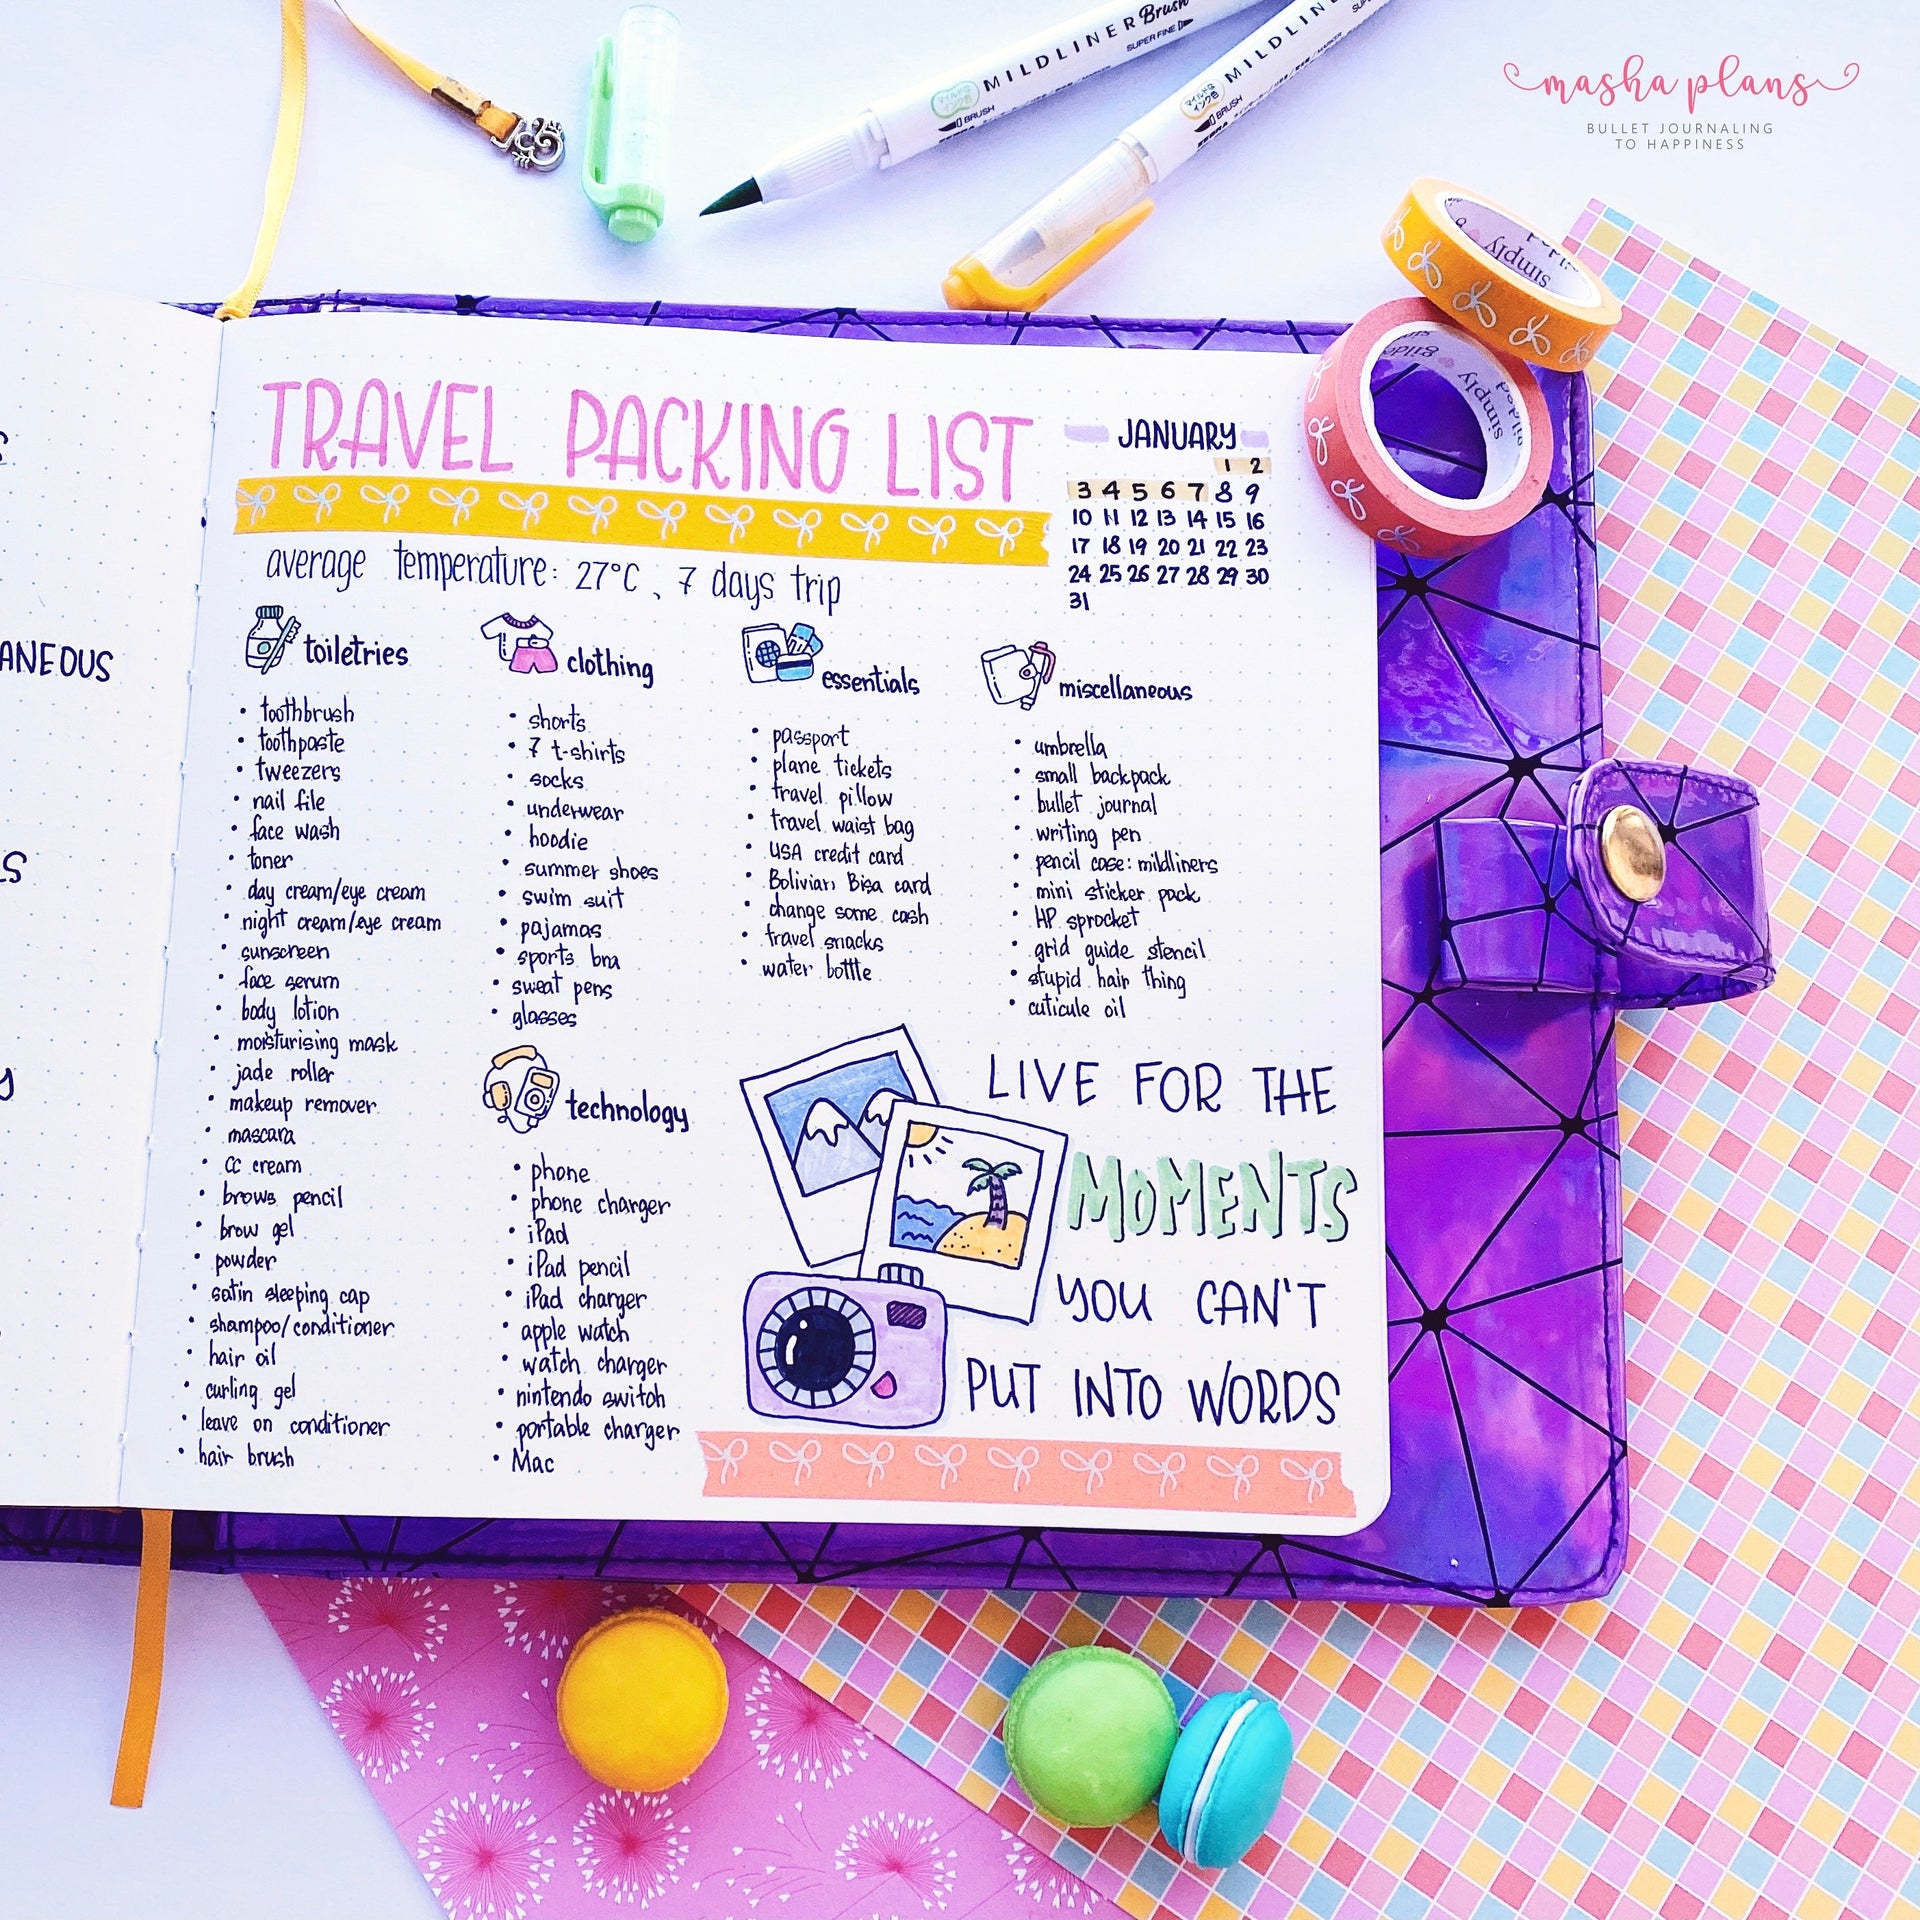 MILDLINER Brush
SUPER FINE
BRUSH
MILDLIN
BRUSH
masha plans
BULLET JOURNALING
TO HAPPINESS
simply
simply
gilded
ANEOUS
TRAVEL PACKING LIST
average temperature: 27°C, 7 days trip
JANUARY
1 2
3 4 5 6 7 8 9
10 11 12 13 14 15 16
17 18 19 20 21 22 23
24 25 26 27 28 29 30
31
toiletries
• toothbrush
• toothpaste
• tweezers
• nail file
• face wash
• toner
• day cream/eye cream
• night cream/eye cream
• sunscreen
• face serum
• body lotion
• moisturising mask
• jade roller
• makeup remover
• mascara
• CC cream
• brows pencil
• brow gel
• powder
• satin sleeping cap
• shampoo/conditioner
• hair oil
• curling gel
• leave on conditioner
• hair brush
clothing
• shorts
• 7 t-shirts
• socks
• underwear
• hoodie
• summer shoes
• swim suit
• pajamas
• sports bra
• sweat pens
• glasses
technology
• phone
• phone charger
• iPad
• iPad pencil
• iPad charger
• apple watch
• watch charger
• nintendo switch
• portable charger
• Mac
essentials
• passport
• plane tickets
• travel pillow
• travel waist bag
• USA credit card
• Bolivian Bisa card
• change some cash
• travel snacks
• water bottle
miscellaneous
• umbrella
• small backpack
• bullet journal
• writing pen
• pencil case: mildliners
• mini sticker pack
• HP sprocket
• grid guide stencil
• stupid hair thing
• cuticule oil
LIVE FOR THE
MOMENTS
YOU CAN'T
PUT INTO WORDS